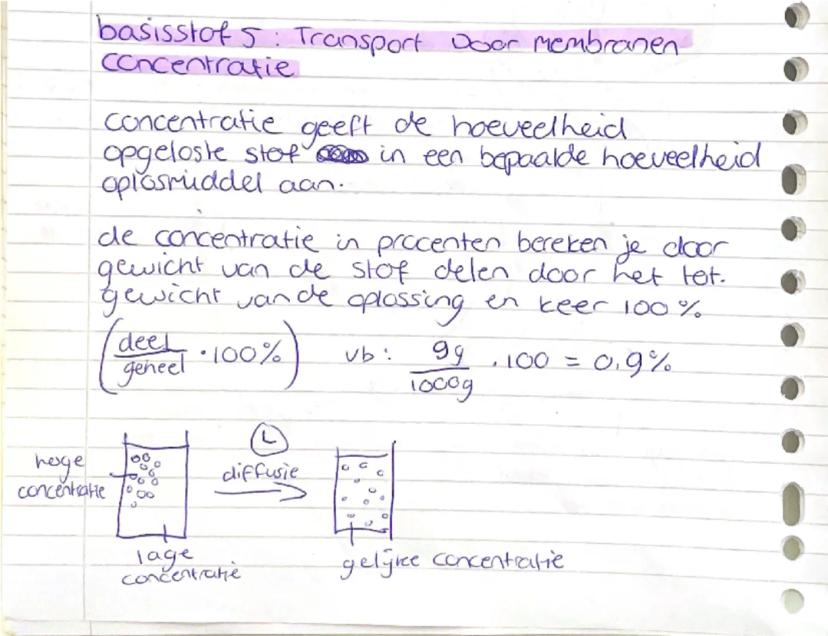 basisstof 5: Transport Door membranen
concentratie
concentratie geeft de hoeveelheid
opgeloste stof in een bepaalde hoeveelheid
oplosmiddel aan.
de concentratie in procenten bereken je door
gewicht van de stof delen door het tot.
gewicht van de oplossing en keer 100%
(deel/geheel · 100%) vb: 9g/1000g · 100 = 0,9%
L
diffusie
hoge
concentratie
lage
concentratie
gelijke concentratie